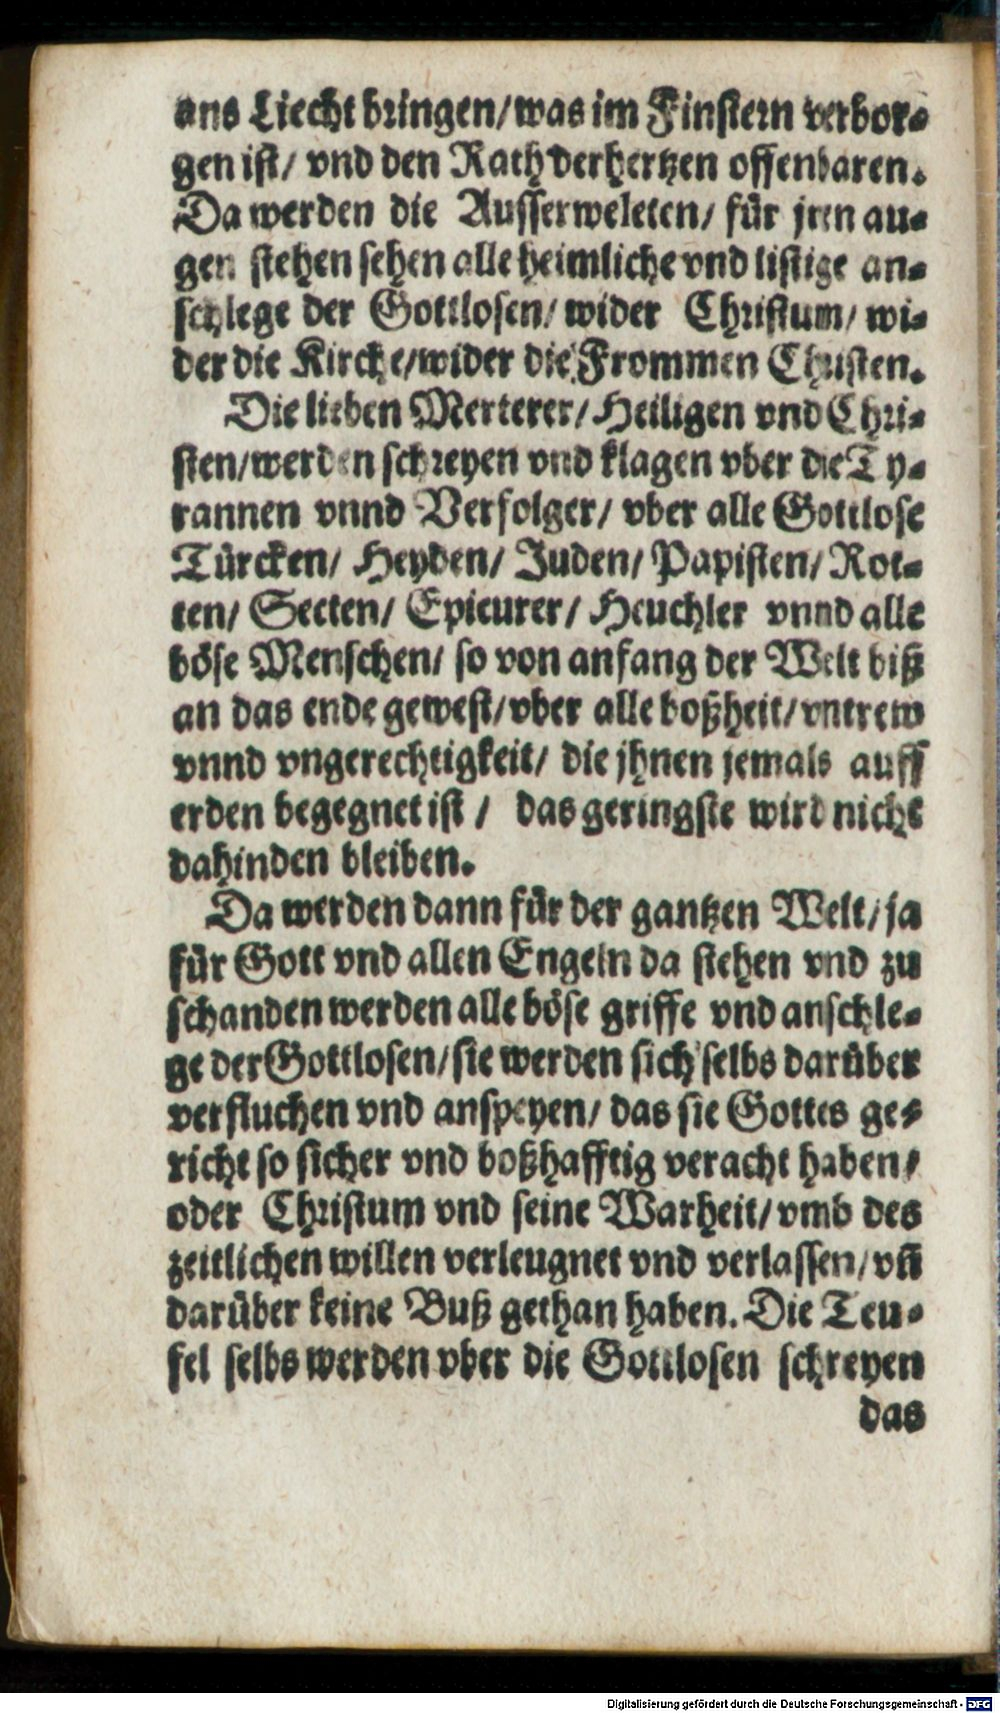 ans Liecht bringen/ was im Finstern verbor-
gen ist/ vnd den Rath der hertzen offenbaren.
Da werden die Ausserweleten/ für jren au-
gen stehen sehen alle heimliche vnd listige an-
schlege der Gottlosen/ wider Christum/ wi-
der die Kirche/ wider die Frommen Christen.
Die lieben Merterer/ Heiligen vnd Chri-
sten/ werden schreyen vnd klagen vber die Ty-
rannen vnnd Verfolger/ vber alle Gottlose
Türcken/ Heyden/ Juden/ Papisten/ Rot-
ten/ Secten/ Epicurer/ Heuchler vnnd alle
böse Menschen/ so von anfang der Welt biß
an das ende gewest/ vber alle boßheit/ vntrew
vnnd vngerechtigkeit/ die jhnen jemals auff
erden begegnet ist/ das geringste wird nicht
dahinden bleiben.
Da werden dann für der gantzen Welt/ ja
für Gott vnd allen Engeln da stehen vnd zu
schanden werden alle böse griffe vnd anschle-
ge der Gottlosen/ sie werden sich selbs darüber
verfluchen vnd anspeyen/ das sie Gottes ge-
richt so sicher vnd boßhafftig veracht haben/
oder Christum vnd seine Warheit/ vmb des
zeitlichen willen verleugnet vnd verlassen/ vñ
darüber keine Buß gethan haben. Die Teu-
fel selbs werden vber die Gottlosen schreyen
das
Digitalisierung gefördert durch die Deutsche Forschungsgemeinschaft - DFG